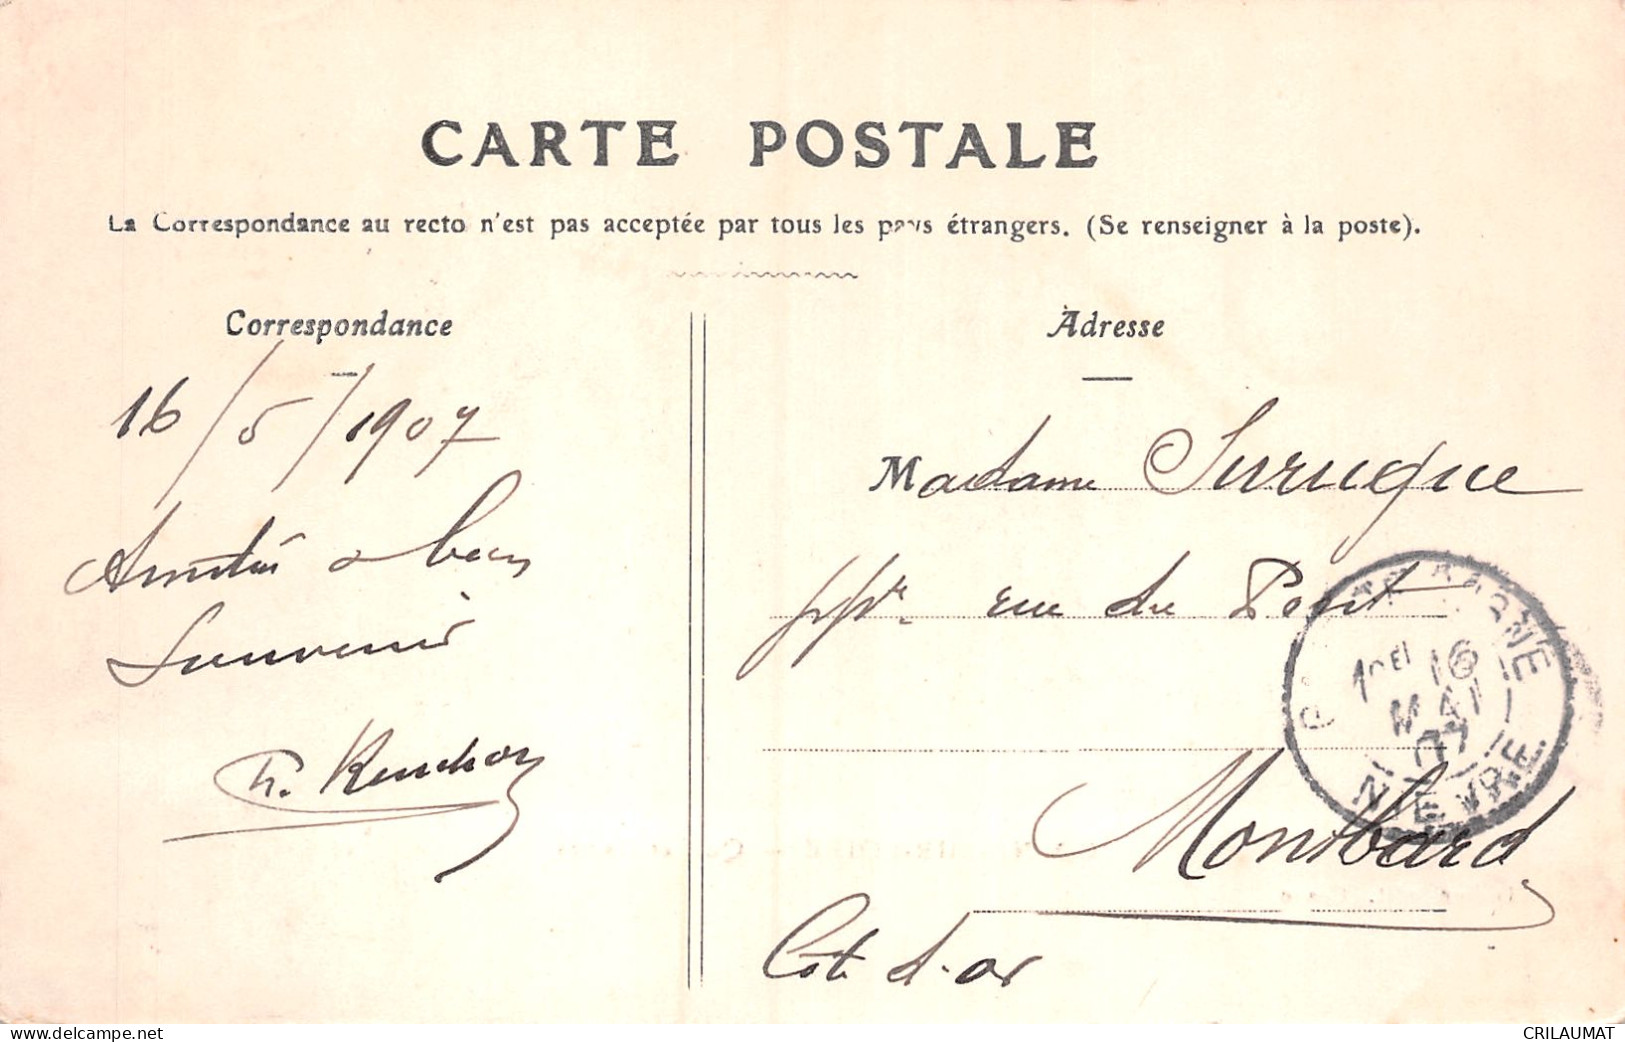 CARTE POSTALE
La Correspondance au recto n'est pas acceptée par tous les pays étrangers. (Se renseigner à la poste).
Correspondance
16/5/1907
Amitiés & bon
Souvenir
Adresse
Madame Surugue
rue du Pont
Montbard
Côte d'or
16
MAI
07
NIEVRE
www.delcampe.net
CRILAUMAT